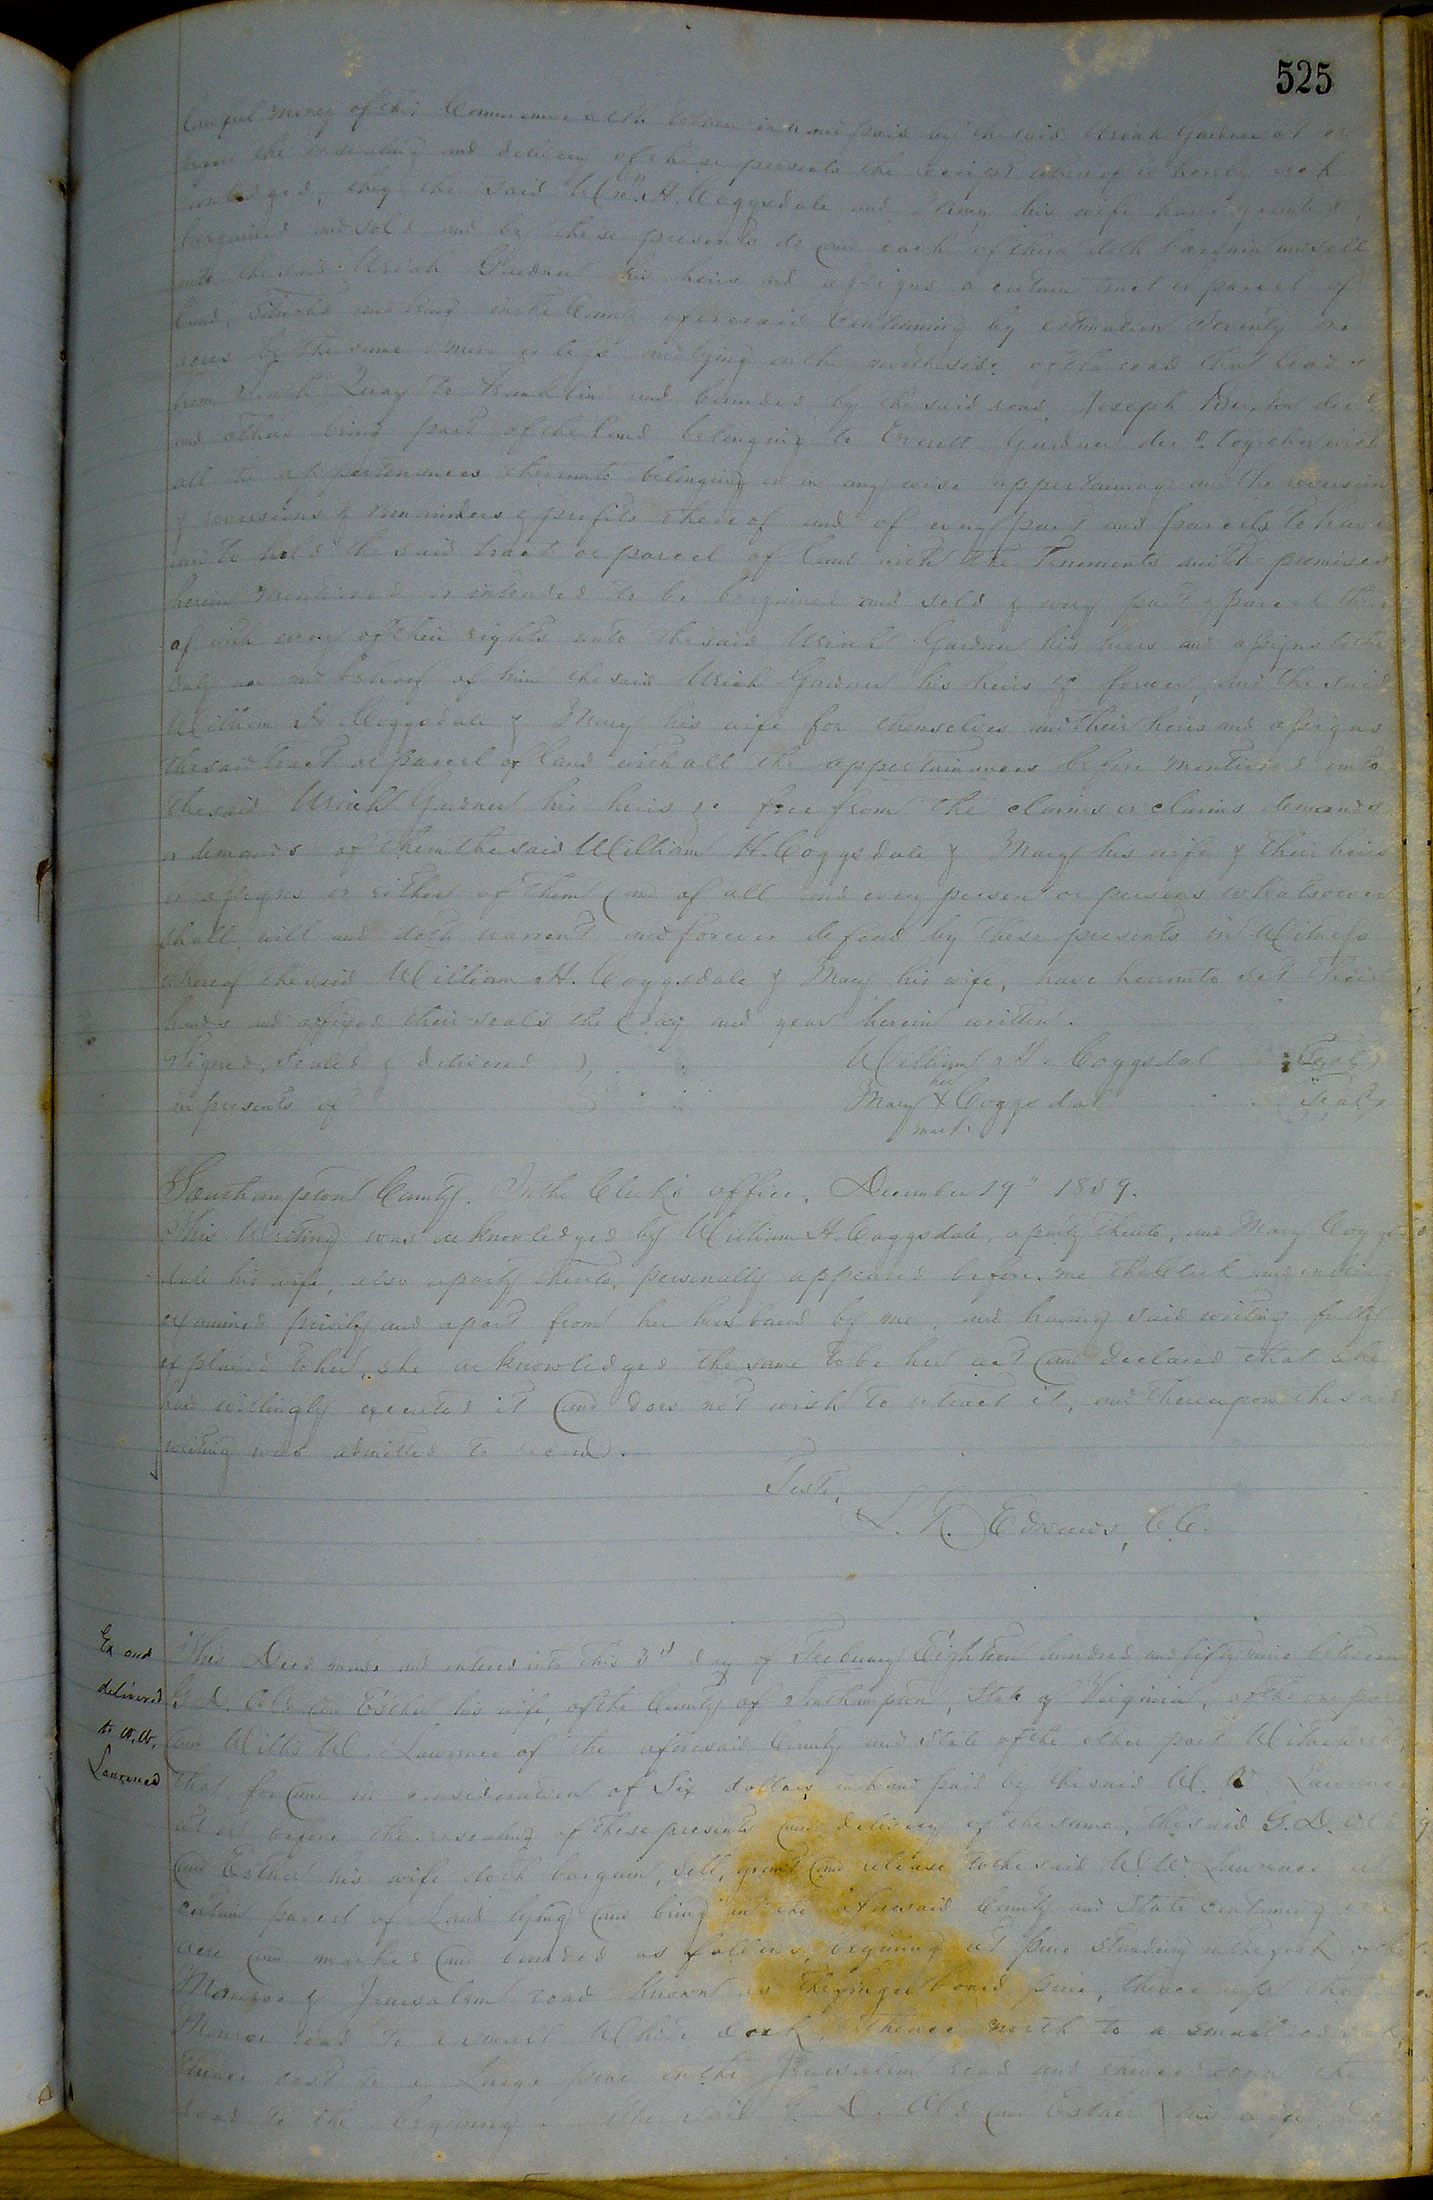 525
lawful money of this Commonwealth to them in hand paid by the said Uriah Gardner at or
before the ensealing and delivery of these presents the receipt whereof is hereby ack
nowledged, they the said Wm. H. Coggsdale and Mary his wife have granted,
bargained and sold and by these presents do and each of them doth bargain and sell
unto the said Uriah Gardner his heirs and assigns a certain tract or parcel of
land, situate and being in the County aforesaid Containing by estimation Seventy
acres be the same more or less and lying on the north side of the road that leads
from South Quay to Franklin and bounded by the said road Joseph decd
and others being part of the land belonging to Everett Gardner decd together with
all the appertenances thereunto belonging or in any wise appertaining and the reversion
& reversions & remainders & profits thereof and of every part and parcels to have
and to hold the said tract or parcel of land with the Tenements and the premises
herein mentioned or intended to be bargained and sold & every part & parcel there
of with every of their rights unto the said Uriah Gardner his heirs and assigns to the
only use and behoof of him the said Uriah Gardner his heirs &c forever, and the said
William H Coggsdale & Mary his wife for themselves and their heirs and assigns
the said tract or parcel of land with all the appertainances before mentioned unto
the said Uriah Gardner his heirs &c free from the claims or claims demands
or demands of them the said William H. Coggsdale & Mary his wife & their heirs
or assigns or either of them and of all and every person or persons whatsoever
shall, will and doth warrent and forever defend by these presents in Witness
whereof the said William H. Coggsdale & Mary his wife, have hereunto set their
hands and affixed their seals the day and year herein written.
Signed, sealed & delivered } William H. Coggsdal {Seal}
in presents of her
Mary X Coggsdal {Seal}
mark.
Southampton County. In the Clerk's office, December 19" 1859.
This Writing was acknowledged by William H. Coggsdale, a party thereto, and Mary Coggs
dale his wife, also a party thereto, personally appeared before me the Clerk and on being
examined privily and apart from her husband by me, and having said writing fully
explained to her, she acknowledged the same to be her act and declared that she
had willingly executed it and does not wish to retract it, and thereupon the said
writing was admitted to record.
Teste,
L. R. Edwards, C.C.
Ex and
delivered
to W. W.
Lawrence
This Deed made and entered into this 3rd day of February Eighteen hundred and fifty nine between
G. D. Old and Esther his wife, of the County of Southampton, State of Virginia, of the one part
and Willis W. Lawrence of the aforesaid County and State of the other part Witnesseth,
that for and in consideration of Six dollars in hand paid by the said W. W. Lawrence
at or before the ensealing of these presents and delivery of the same, the said G. D. Old
and Esther his wife doth bargain, sell, grant and release to the said W. W. Lawrence a
certain parcel of Land lying and being in the aforesaid County and State containing one
acre and marked and bounded as follows, begining at pine standing in the fork of the
Monroe & Jerusalem road known as the finger board pine, thence up the
Monroe road to a small White oak, thence north to a small
thence east to a Large pine on the Jerusalem road and thence down the
road to the begining. the said G. D. Old and Esther his wife